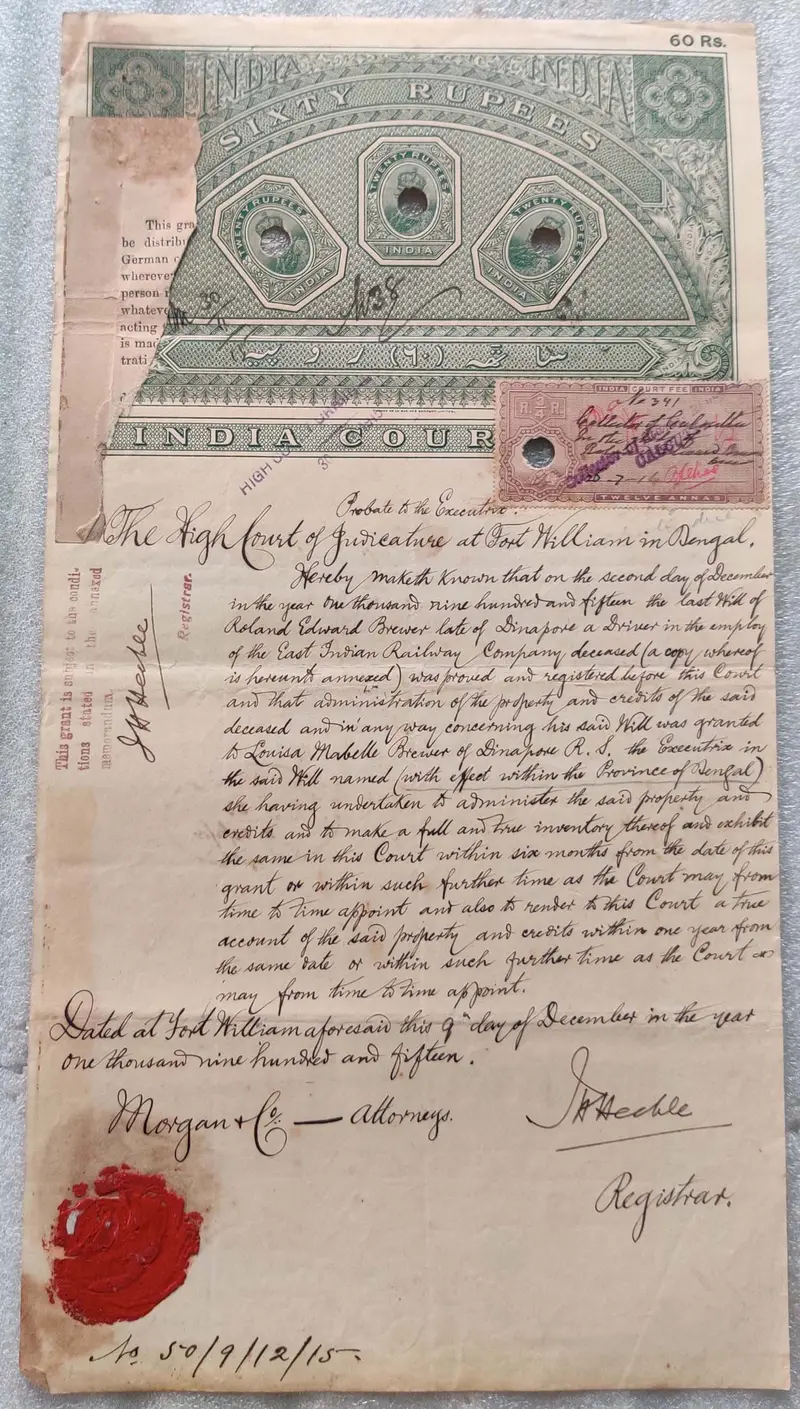 60 Rs.
INDIA INDIA
SIXTY RUPEES
TWENTY RUPEES
INDIA
TWENTY RUPEES
INDIA
TWENTY RUPEES
INDIA
This gra
be distribu
German
wherever
person
whateve
acting
is mad
trati
30
11
15
INDIA COURT FEE INDIA
R R
No 341
Collector of
TWELVE ANNAS
INDIA COUR
HIGH CO
Probate to the Executrix.
The High Court of Judicature at Fort William in Bengal.
Hereby maketh known that on the second day of December
in the year one thousand nine hundred and fifteen the last Will of
Roland Edward Brewer late of Dinapore a Driver in the employ
of the East Indian Railway Company deceased (a copy whereof
is hereunto annexed) was proved and registered before this Court
and that administration of the property and credits of the said
deceased and in any way concerning his said Will was granted
to Louisa Mabelle Brewer of Dinapore R. S. the Executrix in
the said Will named (with effect within the Province of Bengal)
she having undertaken to administer the said property and
credits and to make a full and true inventory thereof and exhibit
the same in this Court within six months from the date of this
grant or within such further time as the Court may from
time to time appoint and also to render to this Court a true
account of the said property and credits within one year from
the same date or within such further time as the Court
may from time to time appoint.
This grant is subject to the condi-
tions stated in the annexed
memorandum.
Registrar.
Dated at Fort William aforesaid this 9th day of December in the year
one thousand nine hundred and fifteen.
Morgan & Co. — Attorneys.
Registrar.
No. 50/9/12/15-